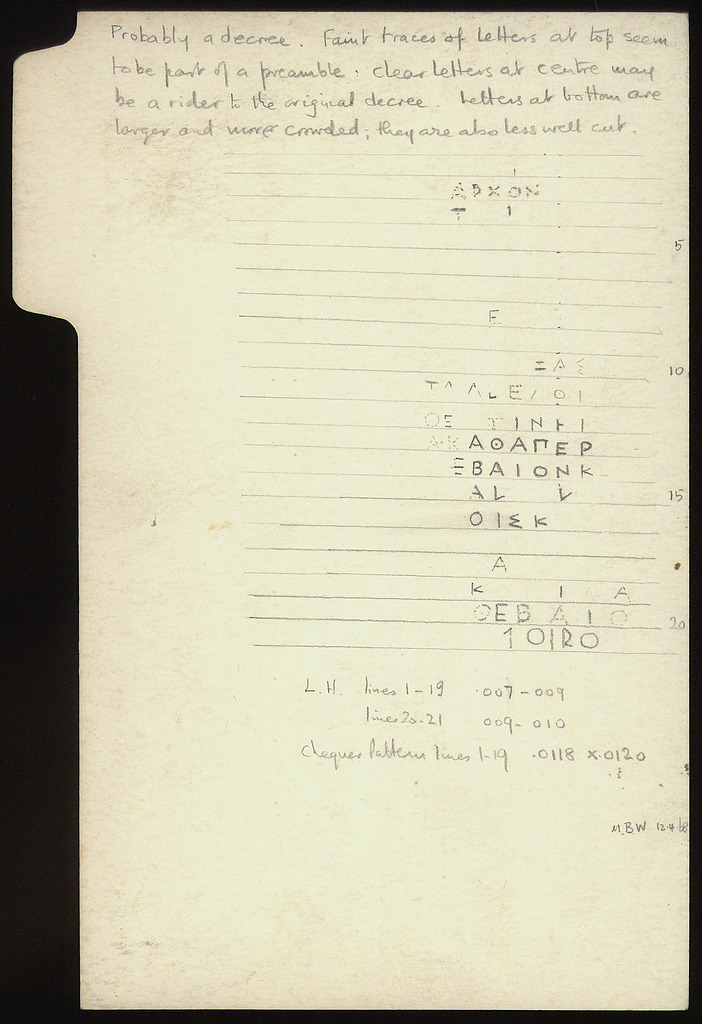 Probably a decree. Faint traces of letters at top seem
to be part of a preamble: clear letters at centre may
be a rider to the original decree. Letters at bottom are
larger and more crowded; they are also less well cut.
ΑΡΧΟΝ
Τ Ι
5
Ε
ΞΑΣ
10
Ο Ι
ΟΕ ΤΙΝΗΙ
Α Κ ΑΘΑΠΕΡ
ΕΒΑΙΟΝΚ
ΑΛ
15
ΟΙΣΚ
Α
Κ Ι Α
ΘΕΒΑΙΟ
20
ΙΟΙRΟ
L.H. lines 1-19 .007-009
lines 20-21 009-010
Chequer Pattern lines 1-19 .0118 x .0120
M.B.W 12.4.68